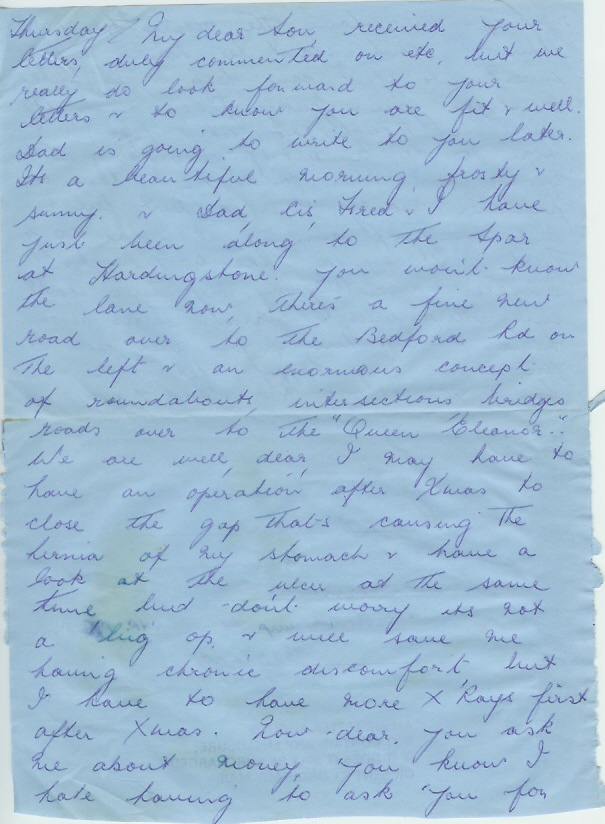 Thursday / My dear Son, received your
letters, duly commented on etc, but we
really do look forward to your
letters & to know you are fit & well.
Dad is going to write to you later.
Its a beautiful morning, frosty &
sunny. & Dad, Cis, Fred & I have
just been along to the Spar
at Hardingstone. You won't know
the lane now, there's a fine new
road over to the Bedford Rd on
the left & an enormous concept
of roundabouts, intersections bridges
roads over to the "Queen Eleanor".
We are well, dear, I may have to
have an operation after Xmas to
close the gap that's causing the
hernia of my stomach & have a
look at the ulcer at the same
time but don't worry its not
a big op, & will save me
having chronic discomfort, but
I have to have more X Rays first
after Xmas. Now dear, you ask
me about money, you know I
hate having to ask you for